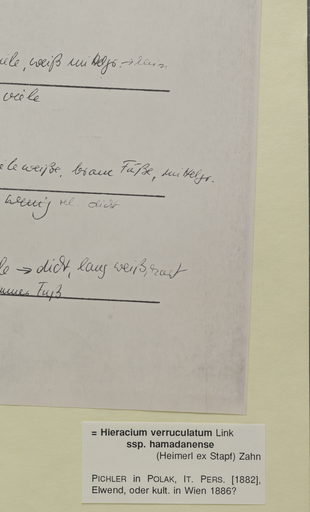 weiß
viele
weiße, braune Füße,
wenig
→ dicht, lang weiß, zart
Fuß
= Hieracium verruculatum Link
ssp. hamadanense
(Heimerl ex Stapf) Zahn
PICHLER in POLAK, IT. PERS. [1882],
Elwend, oder kult. in Wien 1886?